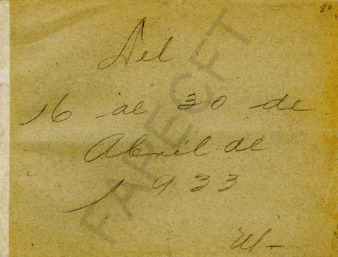 Del
16 al 30 de
Abril de
1933
FAPECFT